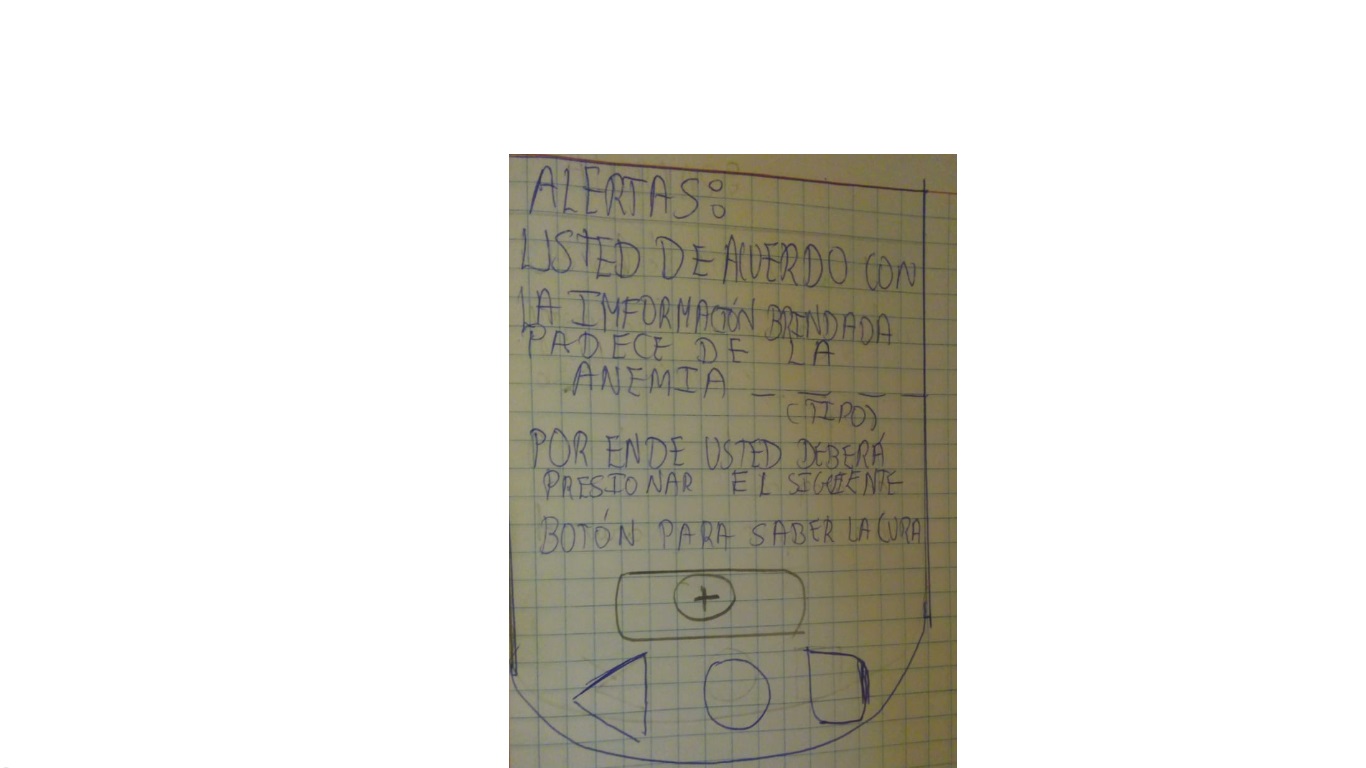 ALERTAS:
USTED DE ACUERDO CON
LA IMFORMACIÓN BRINDADA
PADECE DE LA
ANEMIA _ _ _ _
(TIPO)
POR ENDE USTED DEBERÁ
PRESIONAR EL SIGUIENTE
BOTÓN PARA SABER LA CURA
+